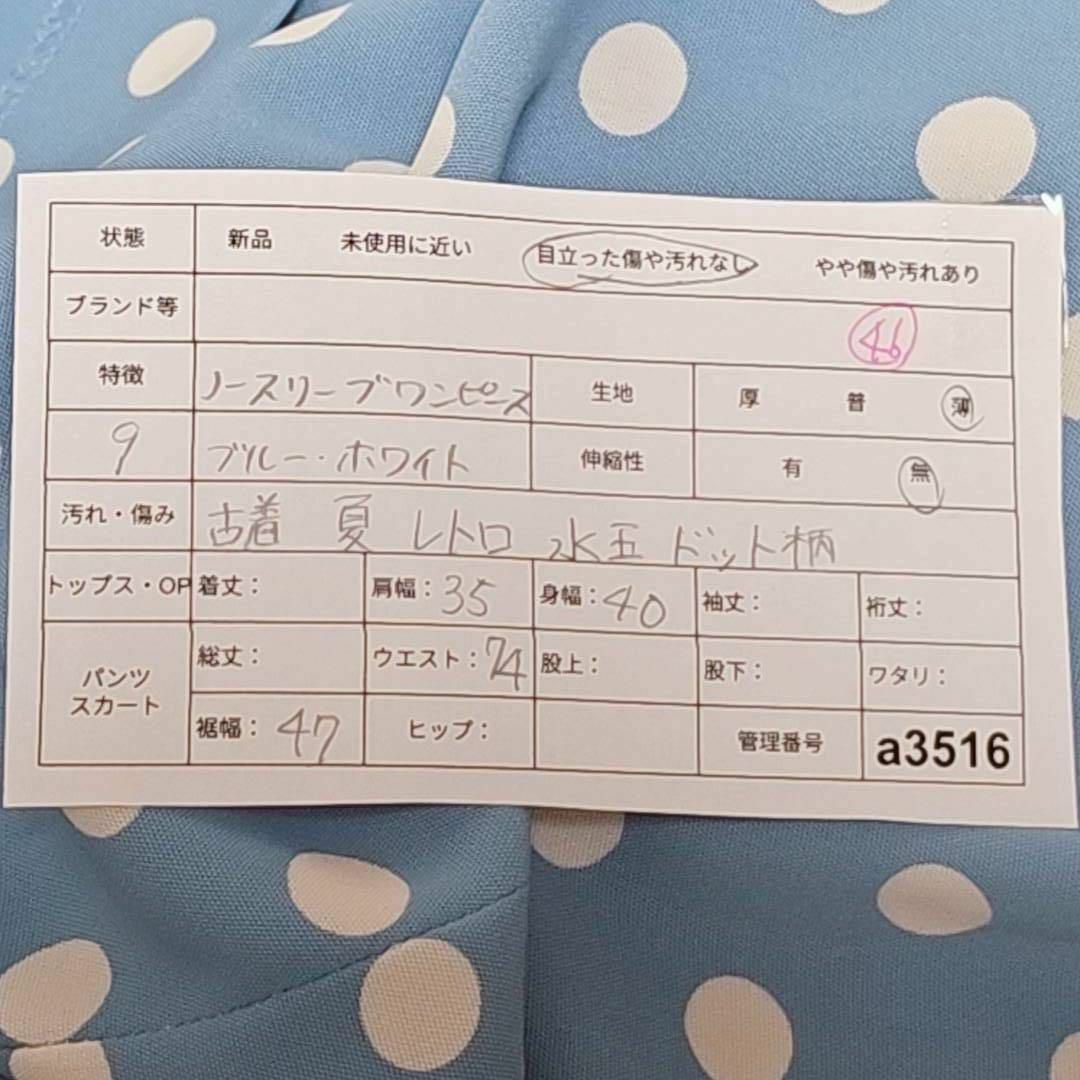 状態 新品 未使用に近い 目立った傷や汚れなし やや傷や汚れあり
ブランド等 46
特徴 ノースリーブワンピース 生地 厚 普 薄
9 ブルー・ホワイト 伸縮性 有 無
汚れ・傷み 古着 夏 レトロ 水玉 ドット柄
トップス・OP 着丈： 肩幅：35 身幅：40 袖丈： 裄丈：
パンツ
スカート
総丈： ウエスト：74 股上： 股下： ワタリ：
裾幅：47 ヒップ： 管理番号 a3516